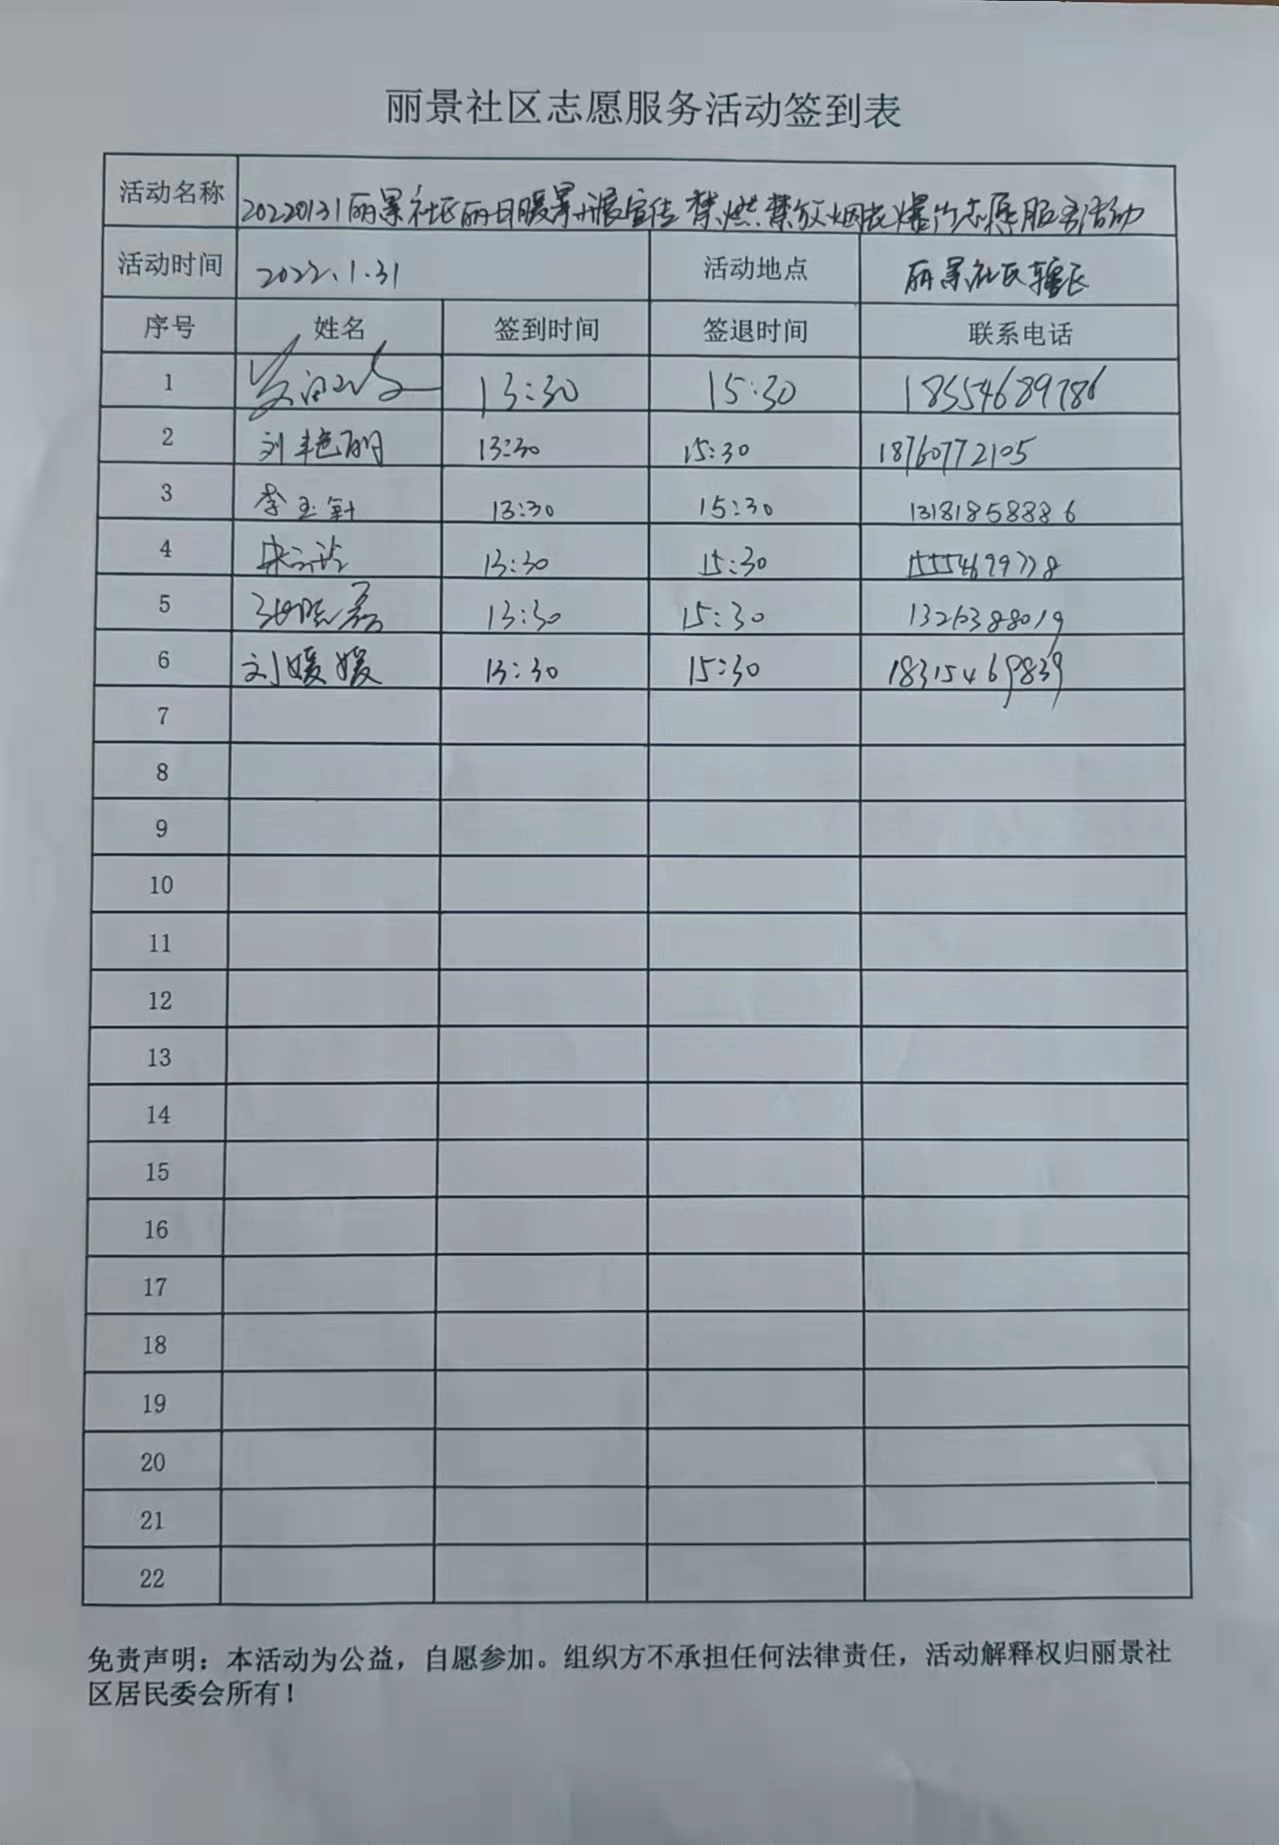 丽景社区志愿服务活动签到表
活动名称 20220131丽景社区丽日暖景开展宣传禁燃禁放烟花爆竹志愿服务活动
活动时间 2022.1.31 活动地点 丽景社区辖区
序号 姓名 签到时间 签退时间 联系电话
1 13:30 15:30 18554689786
2 刘艳丽 13:30 15:30 18760772105
3 李玉軒 13:30 15:30 13181858886
4 13:30 15:30 15554699778
5 13:30 15:30
6 刘媛媛 13:30 15:30 18315469839
7
8
9
10
11
12
13
14
15
16
17
18
19
20
21
22
免责声明：本活动为公益，自愿参加。组织方不承担任何法律责任，活动解释权归丽景社
区居民委会所有！